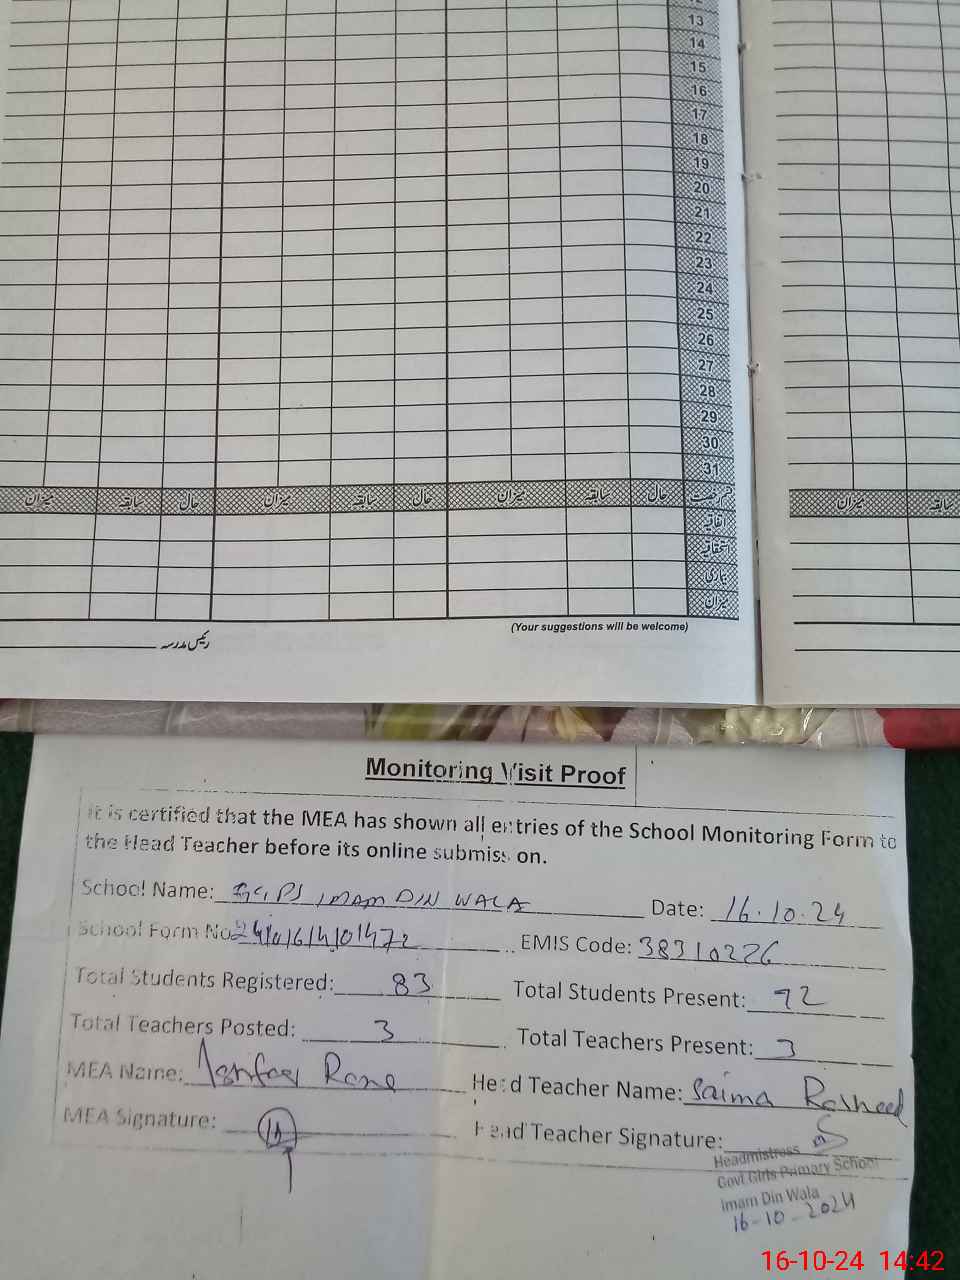 12
13
14
15
16
17
18
19
20
21
22
23
24
25
26
27
28
29
30
31
میزان سابقہ حال میزان سابقہ حال میزان سابقہ حال قسم رخصت
میزان سابقہ
اتفاقیہ
استحقاقیہ
بیماری
میزان
(Your suggestions will be welcome)
رئیس مدرسہ
Monitoring Visit Proof
It is certified that the MEA has shown all entries of the School Monitoring Form to
the Head Teacher before its online submission.
School Name: GGPS IMAM DIN WALA Date: 16.10.24
School Form No 2410161401472 EMIS Code: 38310226
Total Students Registered: 83 Total Students Present: 72
Total Teachers Posted: 3 Total Teachers Present: 3
MEA Name: Ishfaq Rana Head Teacher Name: Saima Rasheed
MEA Signature: Head Teacher Signature:
Headmistress
Govt Girls Primary School
Imam Din Wala
16-10-2024
16-10-24 14:42